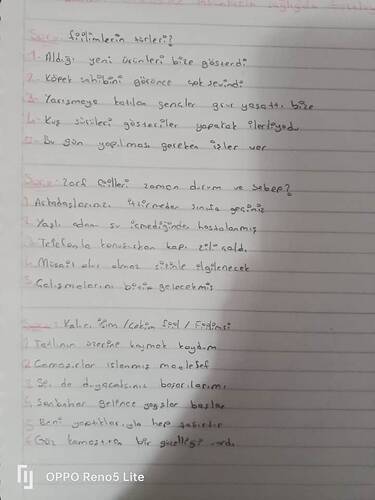 Soru: fiilimlerin türleri?
1- Aldığı yeni ürünleri bize gösterdi
2- Köpek sahibini görünce çok sevindi
3- Yarışmaya katılan gençler gurur yaşattı bize
4- Kuş sürüleri gösteriler yaparak ilerliyor
5- Bu gün yapılması gereken işler var
Soru: Zarf fiilleri zaman durum ve sebep?
1 Arkadaşlarınızı itişirmeden sınıfa geçiniz
2 Yaşlı adam su içmediğinden hastalanmış
3 Telefonla konuşurken kapı zili çaldı
4 Müsait olur olmaz sizinle ilgilenecek
5 Çalışmalarını bitirip gelecekmiş
Soru: Kalıcı isim / Çekim fiil / Fiilimsi
1 Tatlının üzerine kaymak koydum
2 Çamaşırlar ıslanmış maalesef
3 Siz de duyacaksınız başarılarımı
4 Sonbahar gelince yağışlar başlar
5 Beni yaptıklarıyla hep şaşırtır
6 Göz kamaştıran bir güzelliği vardı
OPPO Reno5 Lite